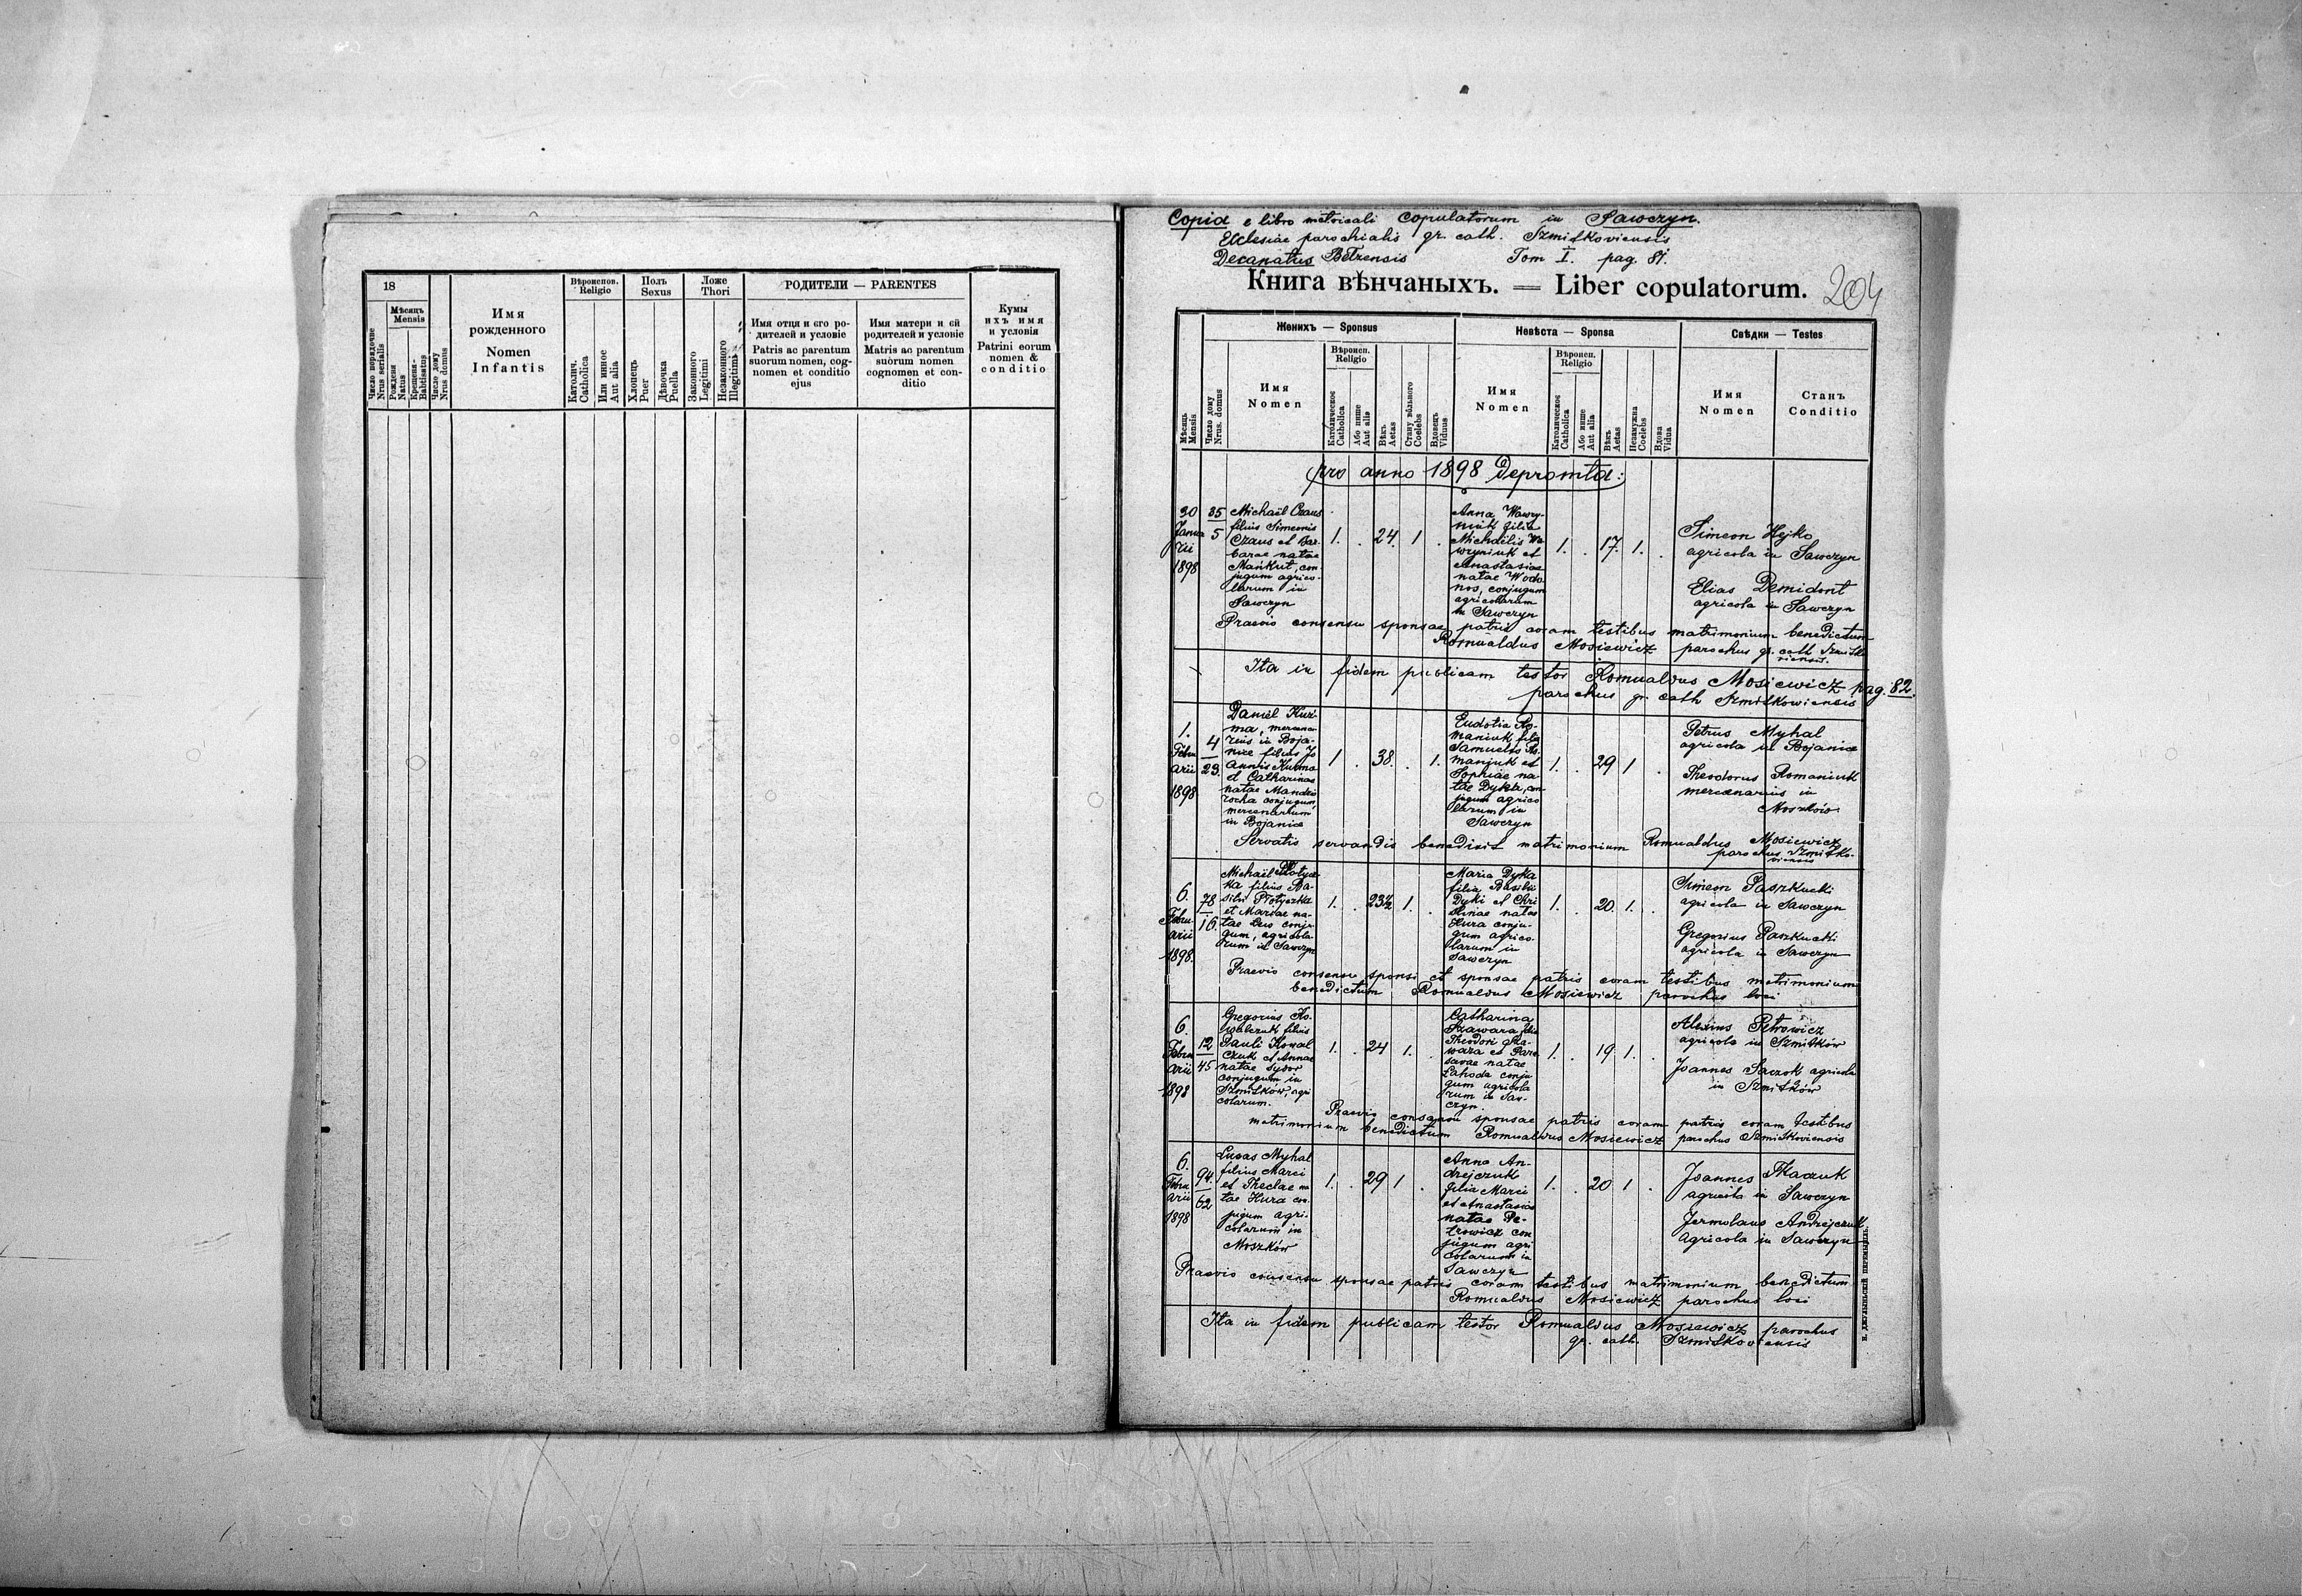 18
Число порядочне
Nrus serialis
Мѣсяць
Mensis
Рождєня
Natus
Крещєня-
Babtisatus
Число дому
Nrus domus
Имя
рожденного
Nomen
Infantis
Вѣроиспов.
Religio
Католич.
Catholica
Или инноє
Aut alia
Полъ
Sexus
Хлопець
Puer
Дѣвочка
Puella
Ложе
Thori
Законного
Legitimi
Незаконного
Illegitimi
РОДИТЕЛИ — PARENTES
Имя отця и єго ро-
дителей и условіє
Patris ac parentum
suorum nomen, cog-
nomen et conditio
ejus
Имя матери и єй
родителей и условіє
Matris ac parentum
suorum nomen
cognomen et con-
ditio
Кумы
ихъ имя
и условія
Patrini eorum
nomen &
conditio
Copia e libro metricali copulatorum in Sawczyn.
Ecclesiae parochialis gr. cath. Szmitkoviensis
Decanatus Bełzensis Tom I. pag. 81.
Книга вѣнчаныхъ. — Liber copulatorum.
204
Женихъ — Sponsus
Невѣста — Sponsa
Свѣдки — Testes
Мѣсяць
Mensis
Число дому
Nrus. domus
Имя
Nomen
Вѣроисп.
Religio
Католическое
Catholica
Або инше
Aut alia
Вѣкъ
Aetas
Стану вôльного
Coelebs
Вдовець
Viduus
Имя
Nomen
Вѣроисп.
Religio
Католическое
Catholica
Або инше
Aut alia
Вѣкъ
Aetas
Незамужна
Coelebs
Вдова
Vidua
Имя
Nomen
Станъ
Conditio
pro anno 1898 Depromta:
30
Janua
rii
1898
35
5
Michaël Czaus
filius Simeonis
Czaus et Bar-
barae natae
Mańkut, con-
jugum agrico-
larum in
Sawczyn
1. . 24. 1 .
Anna Wawry-
niuk filia
Michaëlis Wa
wryniuk et
Anastasiae
natae Wodo
nos, conjugum
agricolarum
in Sawczyn
1. . 17. 1. .
Simeon Hejko
agricola in Sawczyn
Elias Demidont
agricola in Sawczyn
Praevio consensu sponsae patris coram testibus matrimonium benedictum
Romualdus Mosiewicz parochus gr. cath Szmitko
viensis.
Ita in fidem publicam testor Romualdus Mosiewicz pag. 82.
parochus gr. cath Szmitkowiensis
1.
Febru
arii
1898
4
23.
Daniel Kuź-
ma, mercena-
rius in Boja-
nice filius Jo
annis Kuźma
et Catharinae
natae Mandzi
rocha conjugum,
mercenarium
in Bojanice
1 . 38. . 1.
Eudotia Ro-
maniuk filia
Samuelis Ro-
maniuk et
Sophiae na-
tae Dyka, con
jugum agrico
larum in
Sawczyn
1. . 29 1 .
Petrus Myhal
agricola in Bojanice
Theodorus Romaniuk
mercenarius in
Moszków
Servatis servandis benedixit matrimonium Romualdus Mosiewicz
parochus Szmitko-
viensis
6.
Febru-
arii
1898.
78
16.
Michaël Płotycz
ka filius Ba-
silii Płotyczka
et Mariae na-
tae Lus conju
gum, agricola-
rum in Sawczyn
1. . 23½ 1. .
Maria Dyka
filia Basilii
Dyki et Chri
stinae natae
Kura conju-
gum agrico-
larum in
Sawczyn
1. . 20 1. .
Simeon Paszkucki
agricola in Sawczyn
Gregorius Paszkucki
agricola in Sawczyn
Praevio consensu sponsi et sponsae patris coram testibus matrimonium
benedictum Romualdus Mosiewicz parochus loci
6.
Febru
arii
1898
12
45
Gregorius Ko-
walczuk filius
Pauli Kowal
czuk et Annae
natae Sydor
conjugum in
Szmitków, agri
colarum.
1. . 24 1. .
Catharina
Szawara filia
Theodori Sza-
wara et Para
sevae natae
Lahoda conju
gum agricola
rum in Saw-
czyn.
1. . 19 1. .
Alexius Petrowicz
agricola in Szmitków
Joannes Saczok agricola
in Szmitków
Praevio consensu sponsae patris coram patris coram testibus
matrimonium benedictum Romualdus Mosiewicz parochus Szmitkoviensis
6.
Febru
arii
1898
94.
62
Lucas Myhal
filius Marci
et Theclae na
tae Kura con
jugum agri-
colarum in
Moszków
1. . 29 1 .
Anna An-
drejczuk
filia Marci
et Anastasiae
natae Pe-
trowicz con
jugum agri
colarum in
Sawczyn
1. . 20 1 .
Joannes Tkaczuk
agricola in Sawczyn
Jermolaus Andrejczuk
agricola in Sawczyn
Praevio consensu sponsae patris coram testibus matrimonium benedictum
Romualdus Mosiewicz parochus loci
Ita in fidem publicam testor Romualdus Mosiewicz parochus
gr. cath. Szmitkoviensis